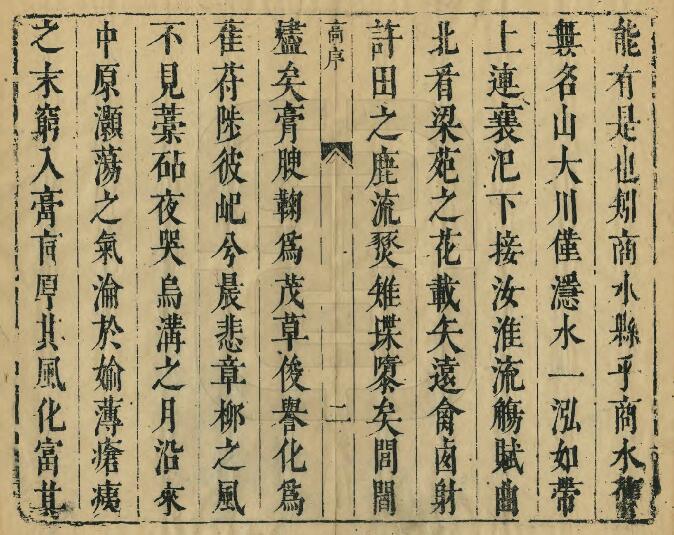 能有是也矧商水縣乎商水
無名山大川僅濦水一泓如帶
上連襄汜下接汝淮流觴賦曲
北看梁苑之花載矢遠禽鹵射
許田之鹿流燹雉堞隳矣閭閻
高序
二
燼矣膏腴鞠爲茂草俊譽化爲
萑苻陟彼屺兮晨悲章梛之風
不見藁砧夜哭烏溝之月沿來
中原灝蕩之氣淪於媮薄瘡痍
之末窮入膏肓厚其風化富其